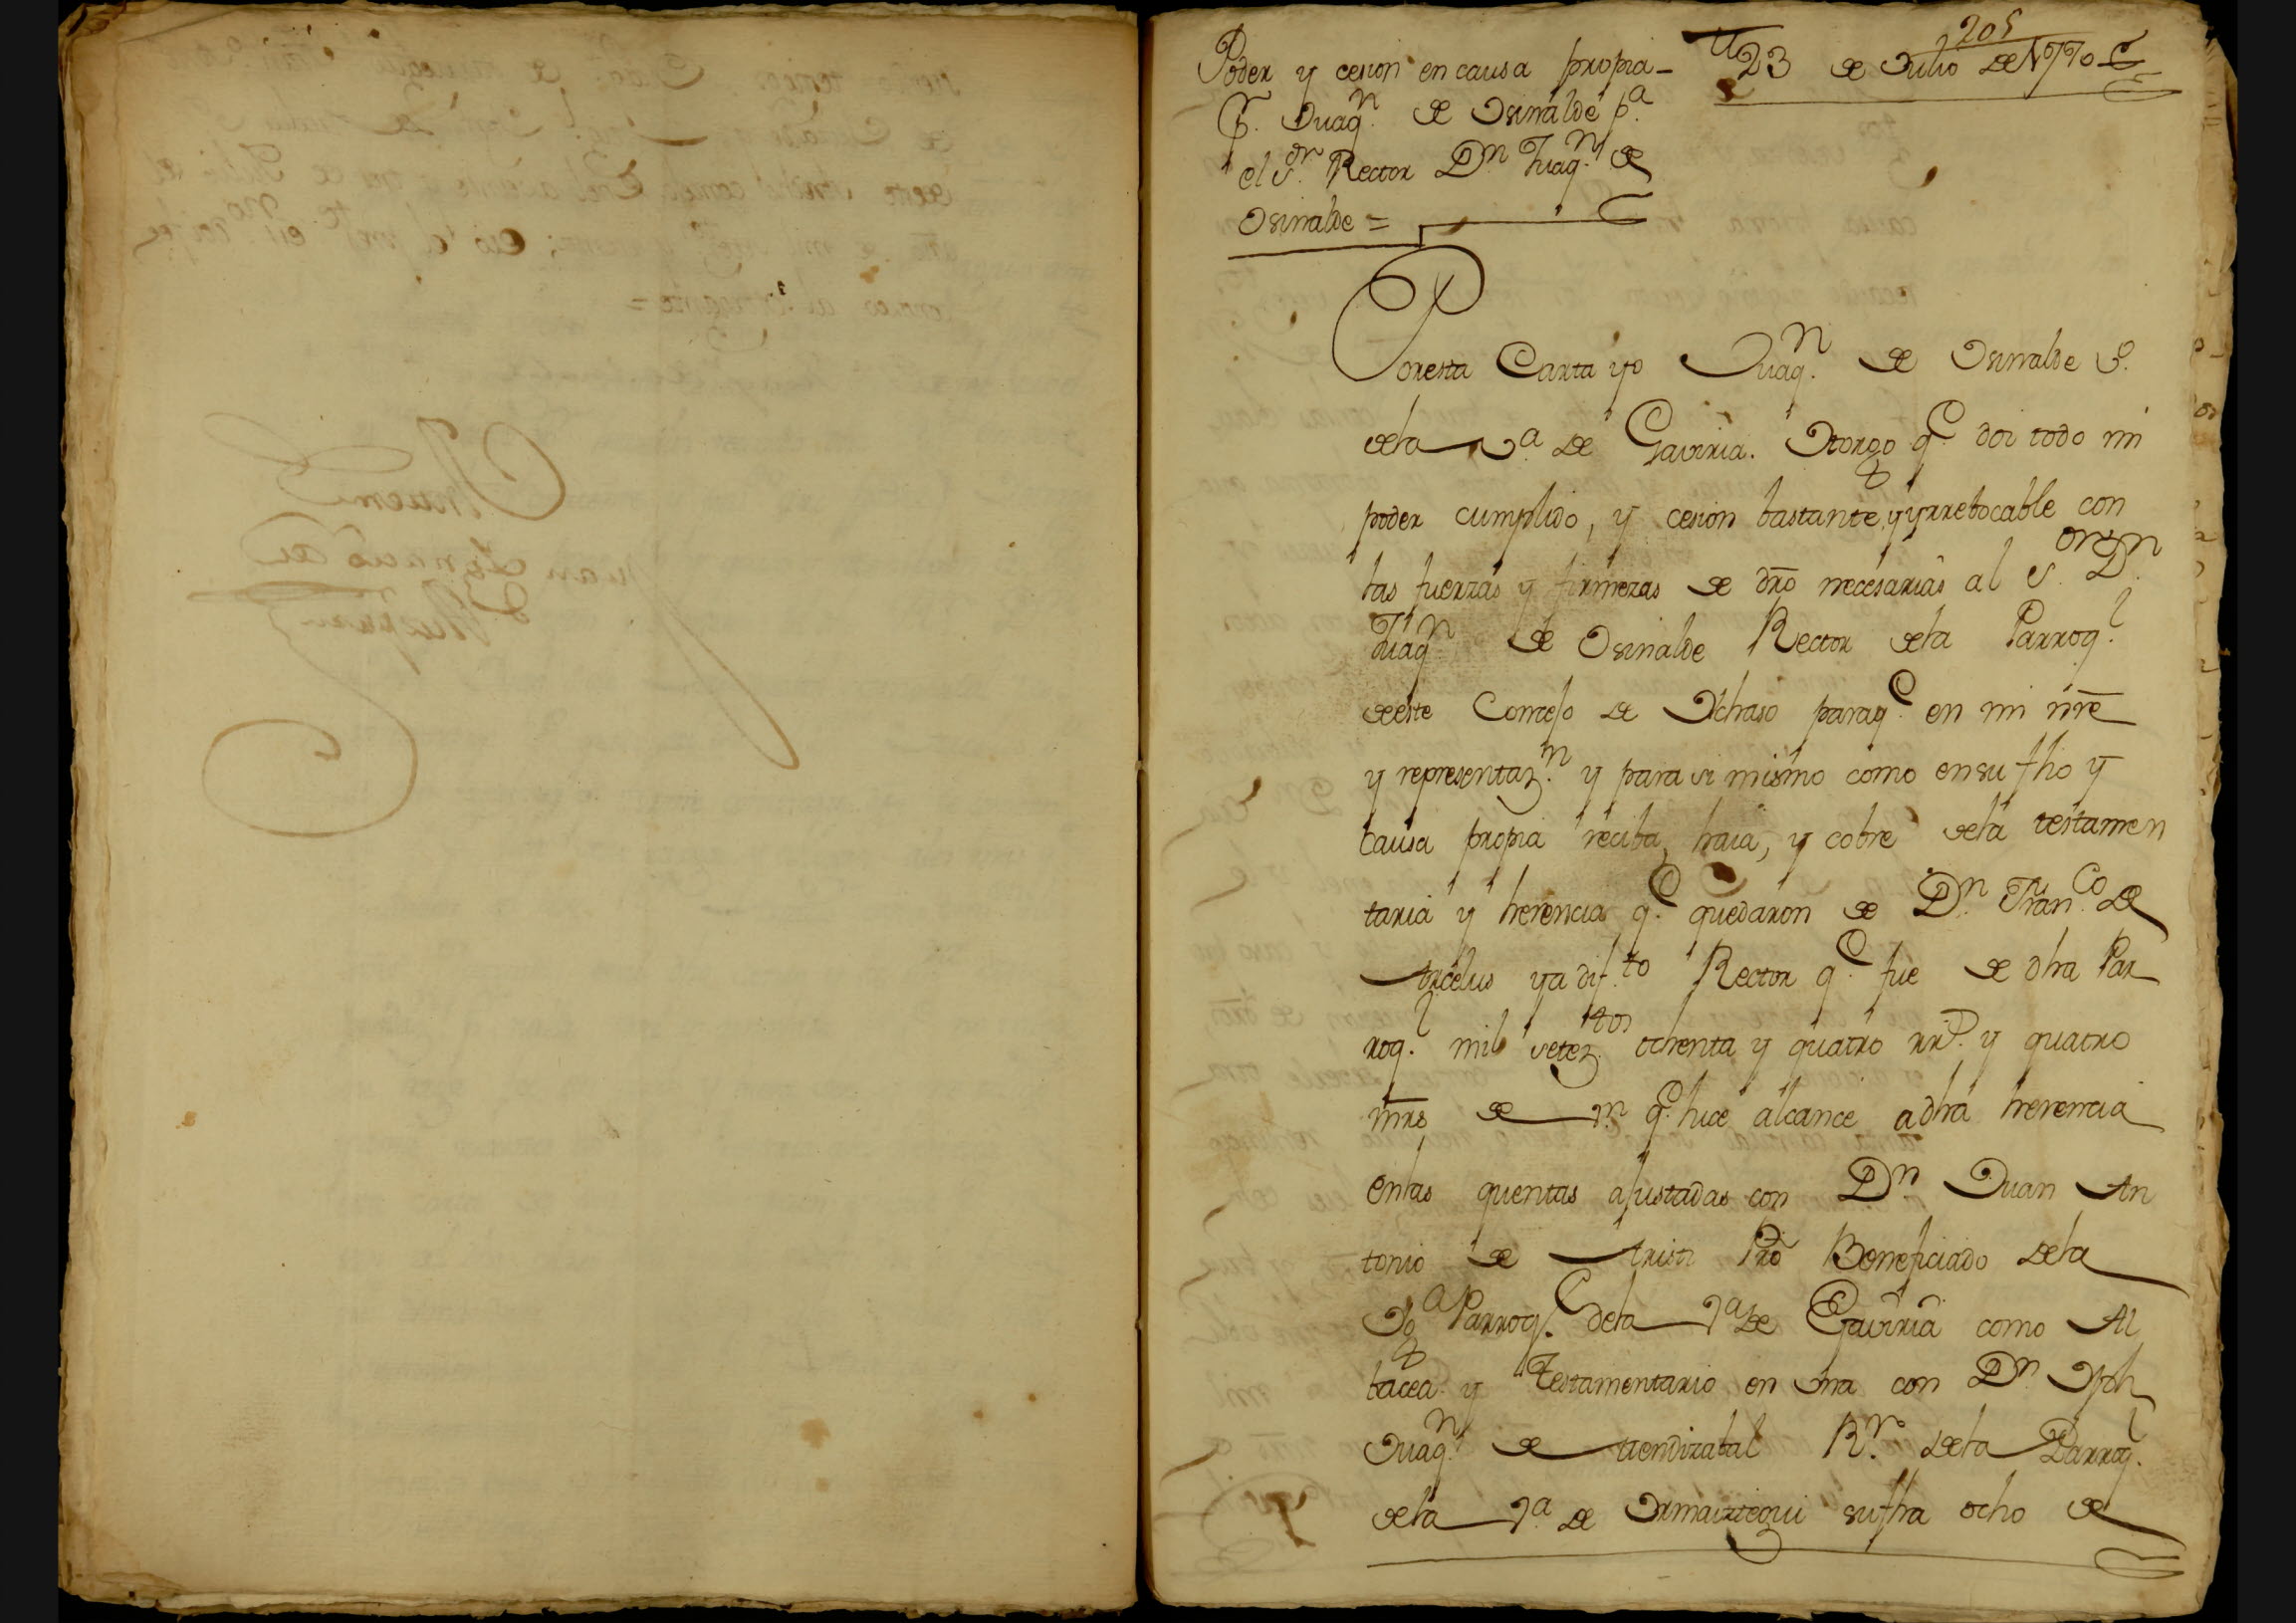 205
Poder y cesion en causa propia
23 de Julio de 1770
P. Juaqn. de Osinalde pa.
el Sor. Rector Dn. Juaqn. de
Osinalde =
Poresta Carta yo Juaqn. de Osinalde vo.
dela Va. de Gaviria. Otorgo qe. doi todo mi
poder cumplido, y cesion bastante, y yrrebocable con
las fuerzas y firmezas de dro necesarias al Sor. Dn.
Juaqn. de Osinalde Rector dela Parroql.
deeste Concejo de Ichaso paraqe. en mi nre
y representazn. y para si mismo como ensu fho y
causa propia reciba, haia, y cobre dela testamen
taria y herencia qe. quedaron de Dn. Franco. de
Arcelus ya difto. Rector qe. fue de dha Par
roql. mil seteztos. ochenta y quatro rrs. y quatro
mrs de vn. qe. hice alcance adha herencia
enlas quentas ajustadas con Dn. Juan An
tonio de Aristi Pro Beneficiado dela
Yga. Parroql. dela Va. de Gaviria como Al
bacea y Testamentario en una con Dn. Jph
Juaqn. de Mendizabal Rr. dela Parroql.
dela Va. de Ormaiztegui sufha ocho de